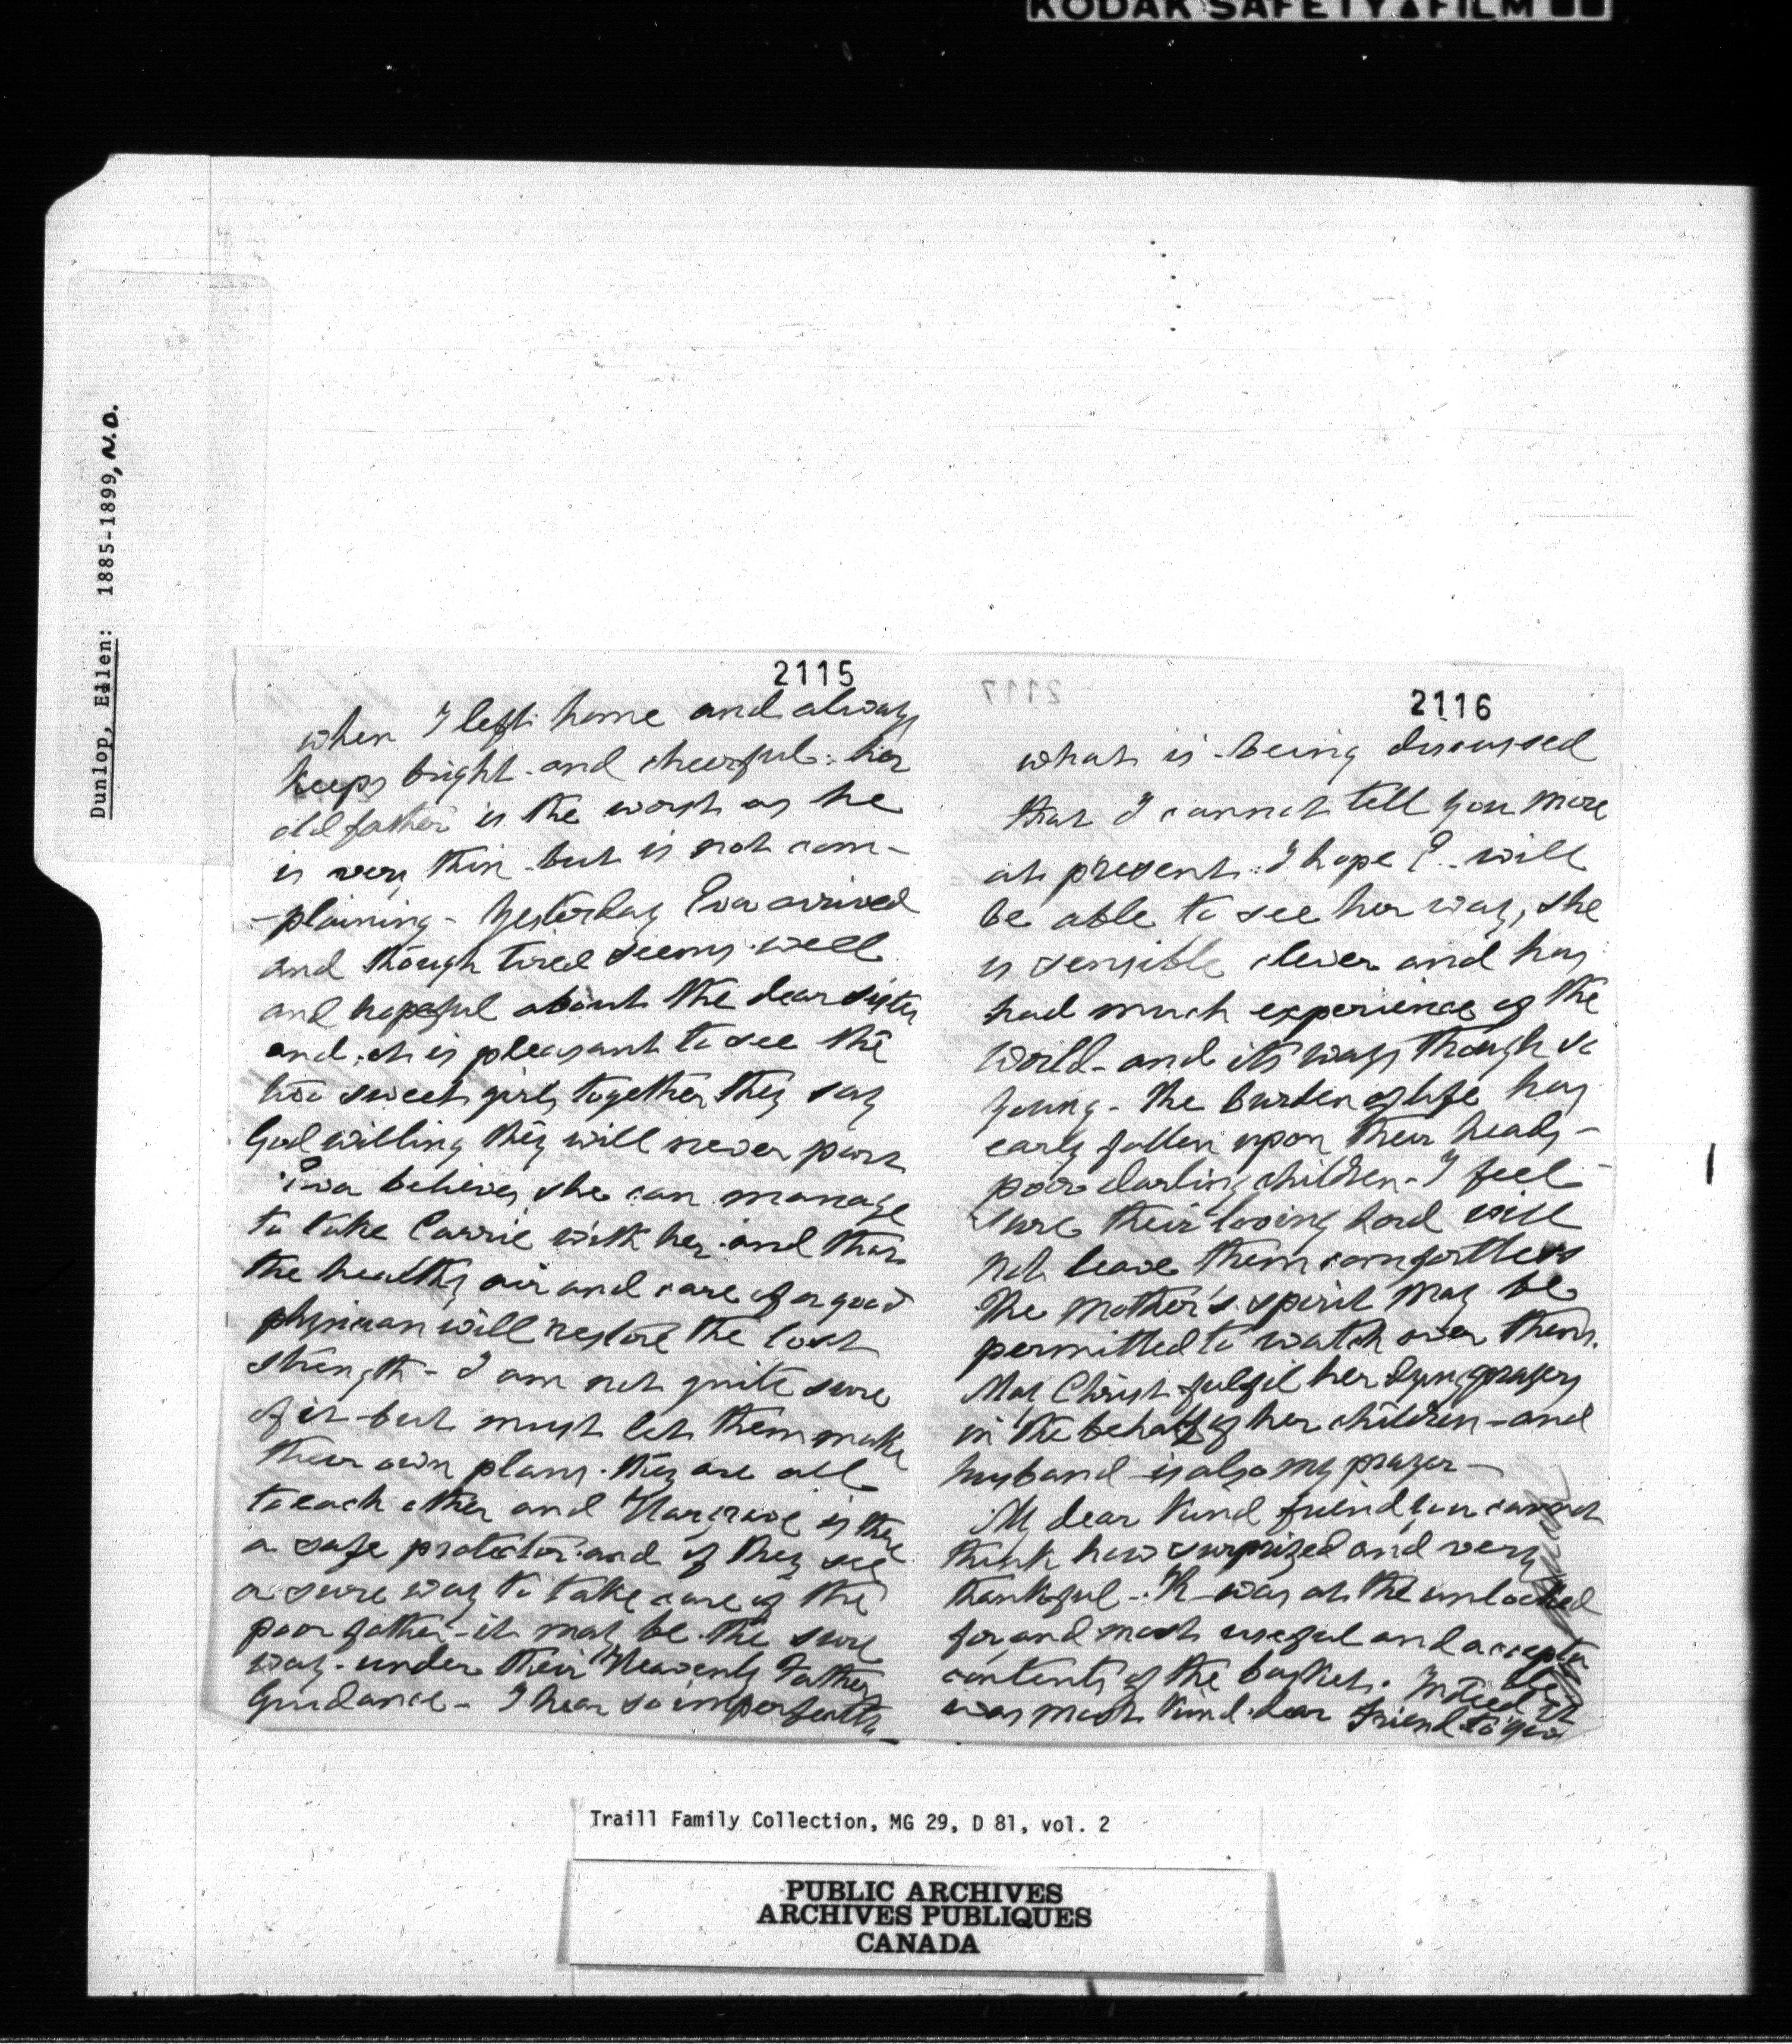 KODAK SAFETY FILM
Dunlop, Ellen: 1885-1899, N.D.
2115
when I left home and always
keeps bright and cheerful: her
old father is the worst as he
is very thin but is not com-
-plaining - Yesterday Eva arrived
and though tired seems well
and hopeful about the dear sister
and it is pleasant to see the
two sweet girls together they say
God willing they will never part
Eva believes she can manage
to take Carrie with her and that
the healthy air and care of a good
physician will restore the lost
strength - I am not quite sure
of it - but must let them make
their own plans. they are all
to each other and Hargrave is there
a safe protector and if they see
a sure way to take care of the
poor father - it may be the sure
way - under their Heavenly Father
Guidance - I hear so imperfectly
2117
2116
what is being discussed
that I cannot tell you more
at present. I hope E. will
be able to see her way, she
is sensible clever and has
had much experience of the
world - and its ways though so
young - The burden of life has
early fallen upon their heads -
poor darling children - I feel
sure their loving Lord will
not leave them comfortless
The Mother's spirit may be
permitted to watch over them.
May Christ fulfil her dying prayers
in the behalf of her children - and
husband is also my prayer -
My dear kind friend you cannot
think how surprized and very
thankful I was at the unlooked
for and most useful and accepta
contents of the basket. Indeed it
was most kind dear friend to you
Traill Family Collection, MG 29, D 81, vol. 2
PUBLIC ARCHIVES
ARCHIVES PUBLIQUES
CANADA